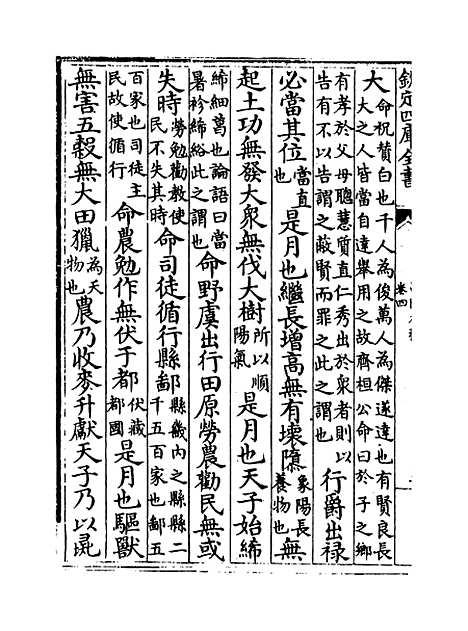 欽定四庫全書
卷四
大命祝贊白也千人為俊萬人為傑遂達也有賢良長
大之人皆當自達舉用之故齊桓公命曰於子之鄉
有孝於父母聰慧質直仁秀出於衆者則以
告有不以告謂之蔽賢而罪之此之謂也行爵出祿
必當其位當直也是月也繼長增高無有壞隳象陽長養物也無
起土功無發大衆無伐大樹所以順陽氣是月也天子始絺
絺細葛也論語曰當暑袗絺綌此之謂也命野虞出行田原勞農勸民無或
失時勞勉勸教使民不失其時命司徒循行縣鄙縣畿内之縣縣二千五百家也鄙五
百家也司徒主民故使循行命農勉作無伏于都伏藏都國是月也驅獸
無害五穀無大田獵為夭物也農乃收麥升獻天子乃以彘